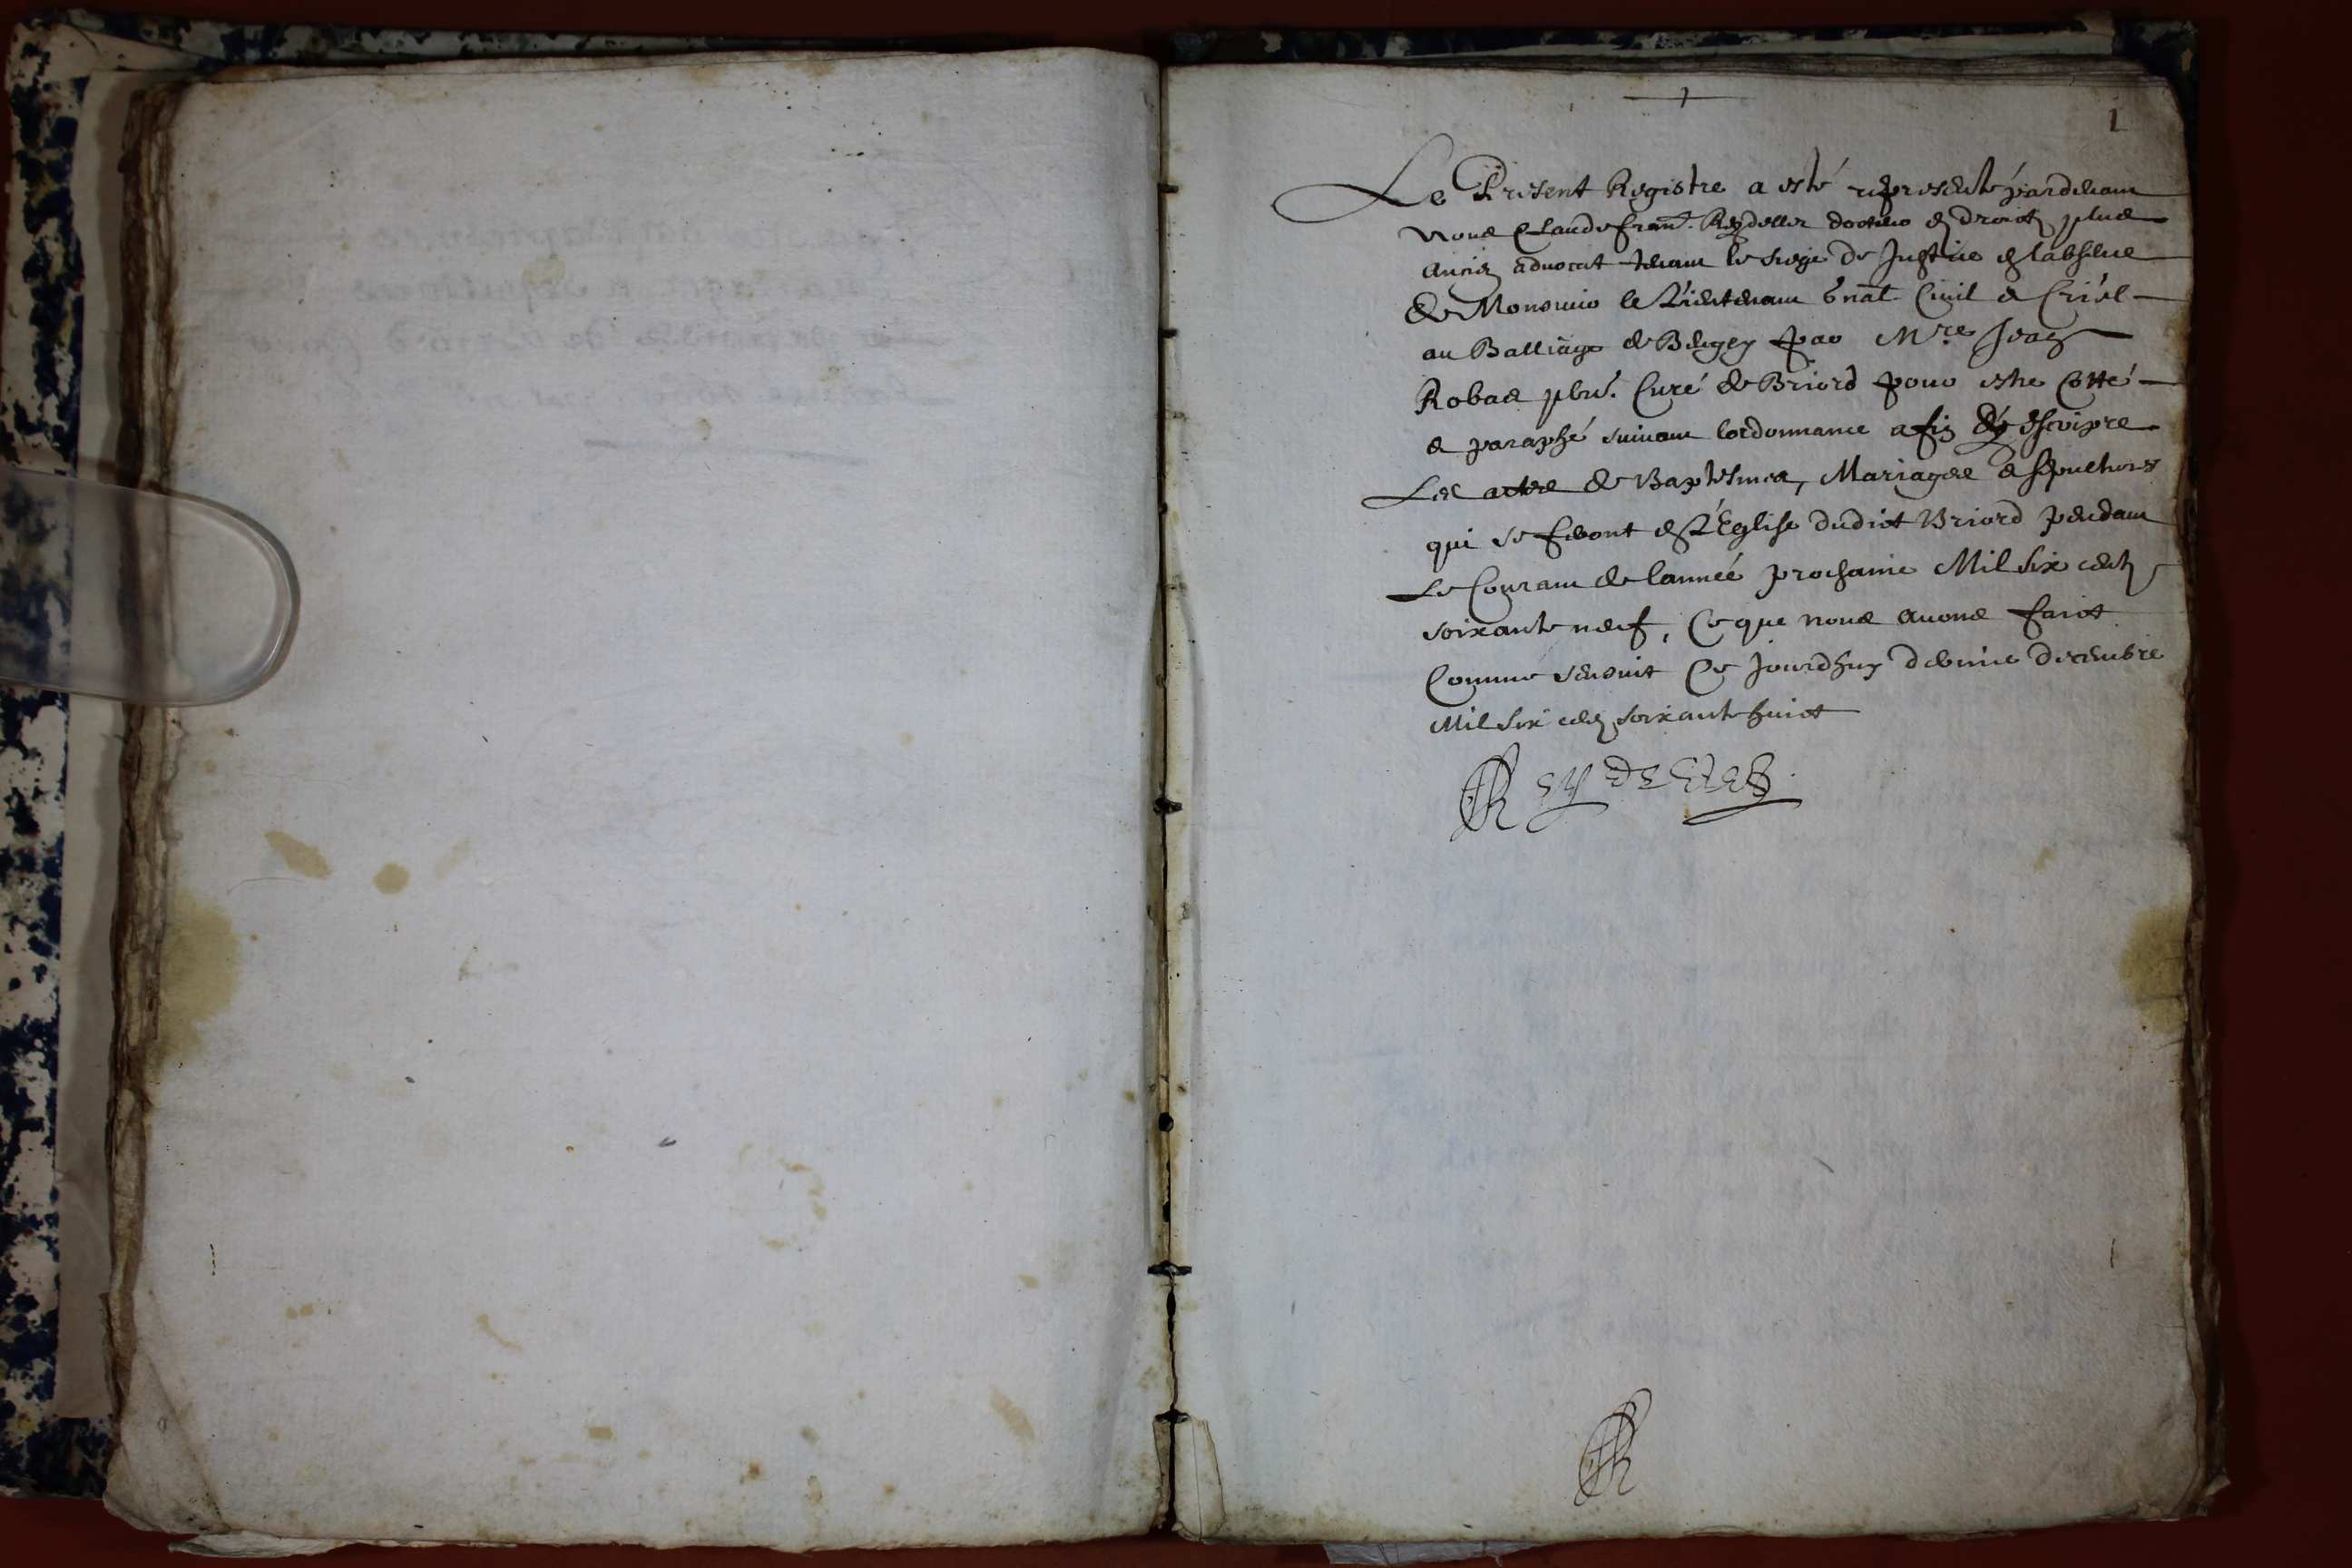 1
Le Present Registre a esté representé pardevant
nous Claude Franc. Reydellet docteur en droict plus
ancien advocat tenant le siege de Justice en labsence
de Monsieur le Lieutenant gnal Civil et Criel
au Balliage de Beugey par Mre Jean
Robat pbre. Curé de Briord pour estre Cotté
et paraphé suivant lordonnance afin dy escripre
Les actes de Baptesmes, Mariages et sepultures
qui se feront en L'Eglise dudict Briord pendant
Le Courant de lannée prochaine Mil six cent
soixante neuf, Ce que nous avons faict
Comme sensuit Ce jourdhuy dernier decembre
Mil six cent soixante huict
Reydellet